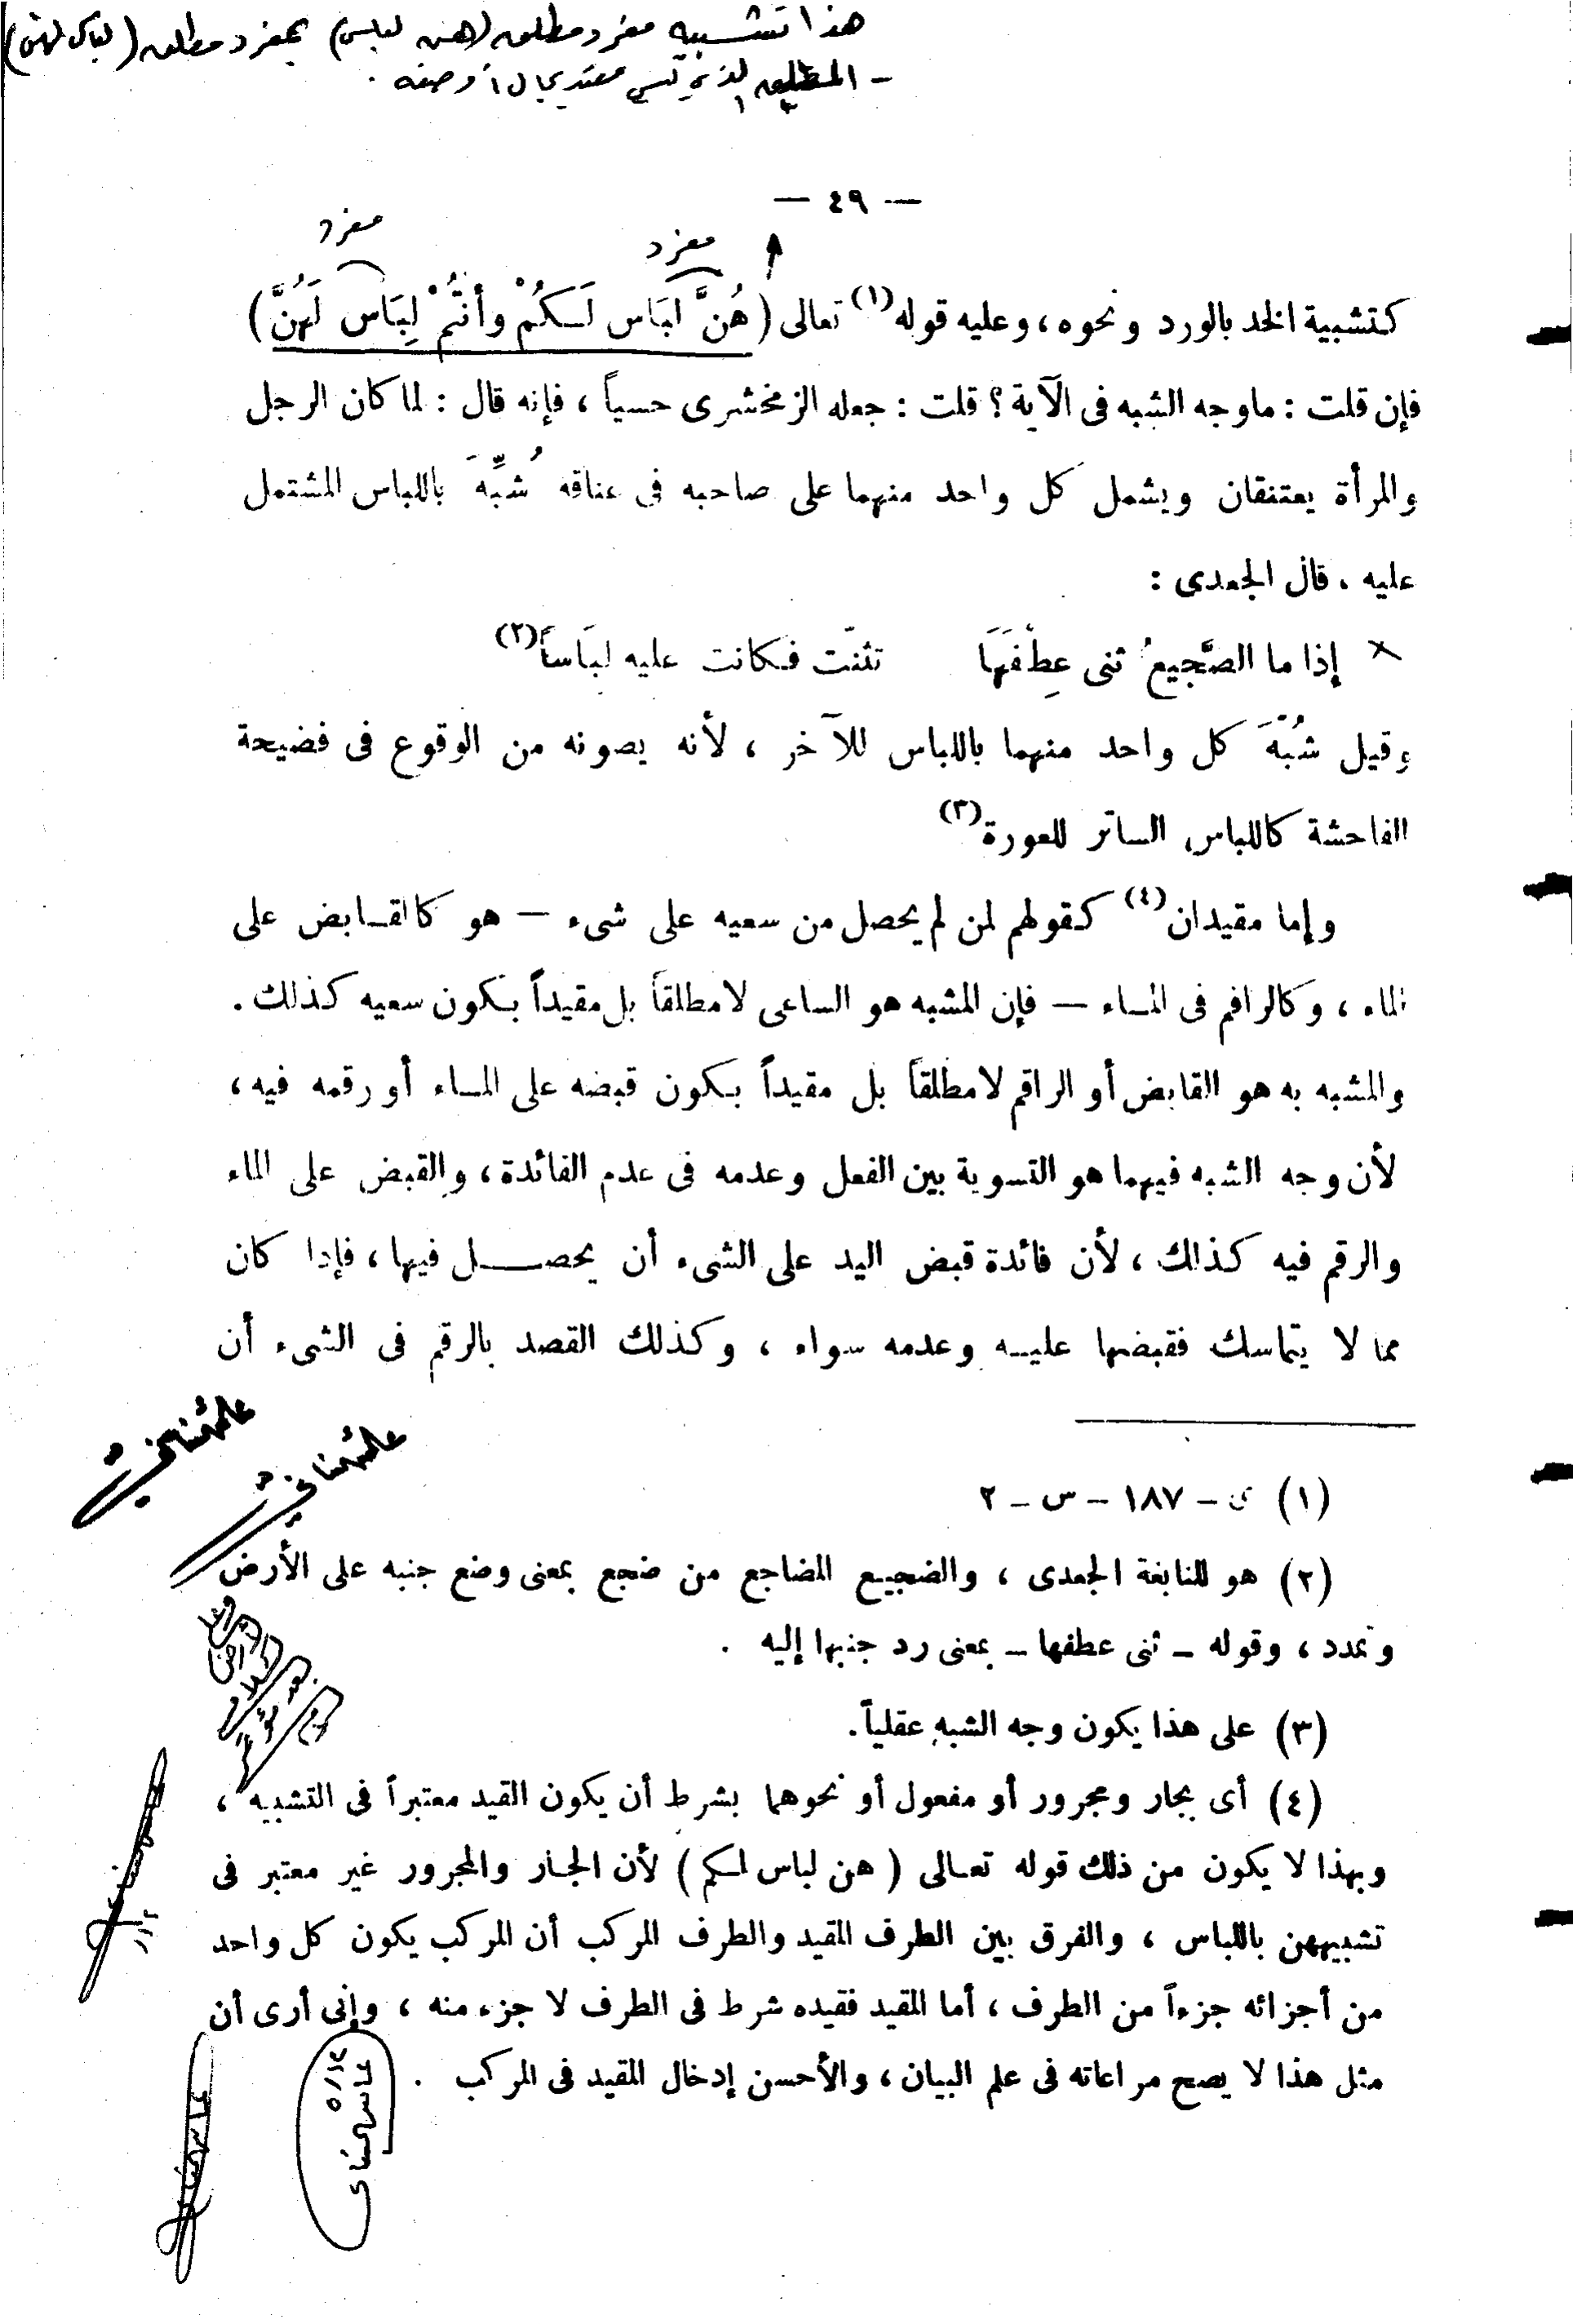 هذا تشبيه مفرد مطلق (هن لباس) بمفرد مطلق (لباس لهن)
- المطلق الذي ليس مقيد بحال أو صفه .
— ٤٩ —
مفرد
مفرد
كتشبية الخد بالورد ونحوه، وعليه قوله(١) تعالى (هُنَّ لِبَاس لَكُمْ وأنتُمْ لِبَاس لَهُنَّ)
فإن قلت : ماوجه الشبه فى الآية؟ قلت : جعله الزمخشرى حسياً ، فإنه قال : لما كان الرجل
والمرأة يعتنقان ويشمل كل واحد منهما على صاحبه فى عناقه شُبِّهَ باللباس المشتمل
عليه ، قال الجعدى :
إذا ما الضَّجيعُ ثنى عِطْفَهَا تثنّت فكانت عليه لبَاساً(٢)
وقيل شُبِّهَ كل واحد منهما باللباس للآخر ، لأنه يصونه من الوقوع فى فضيحة
الفاحشة كاللباس الساتر للعورة(٣)
وإما مقيدان(٤) كقولهم لمن لم يحصل من سعيه على شىء — هو كالقابض على
الماء ، وكالراقم فى الماء — فإن المشبه هو الساعى لامطلقاً بل مقيداً بكون سعيه كذلك .
والمشبه به هو القابض أو الراقم لامطلقاً بل مقيداً بكون قبضه على الماء أو رقمه فيه ،
لأن وجه الشبه فيهما هو التسوية بين الفعل وعدمه فى عدم الفائدة ، والقبض على الماء
والرقم فيه كذلك ، لأن فائدة قبض اليد على الشىء أن يحصل فيها ، فإذا كان
مما لا يتماسك فقبضها عليه وعدمه سواء ، وكذلك القصد بالرقم فى الشىء أن
(١) ى - ١٨٧ - س - ٢
(٢) هو للنابغة الجعدى ، والضجيع المضاجع من ضجع بمعنى وضع جنبه على الأرض
وتمدد ، وقوله - ثنى عطفها - بمعنى رد جنبها إليه .
(٣) على هذا يكون وجه الشبه عقلياً .
(٤) أى بجار ومجرور أو مفعول أو نحوهما بشرط أن يكون القيد معتبراً فى التشبيه ،
وبهذا لا يكون من ذلك قوله تعالى ( هن لباس لكم ) لأن الجار والمجرور غير معتبر فى
تشبيههن باللباس ، والفرق بين الطرف المقيد والطرف المركب أن المركب يكون كل واحد
من أجزائه جزءاً من الطرف ، أما المقيد فقيده شرط فى الطرف لا جزء منه ، وإنى أرى أن
مثل هذا لا يصح مراعاته فى علم البيان ، والأحسن إدخال المقيد فى المركب .